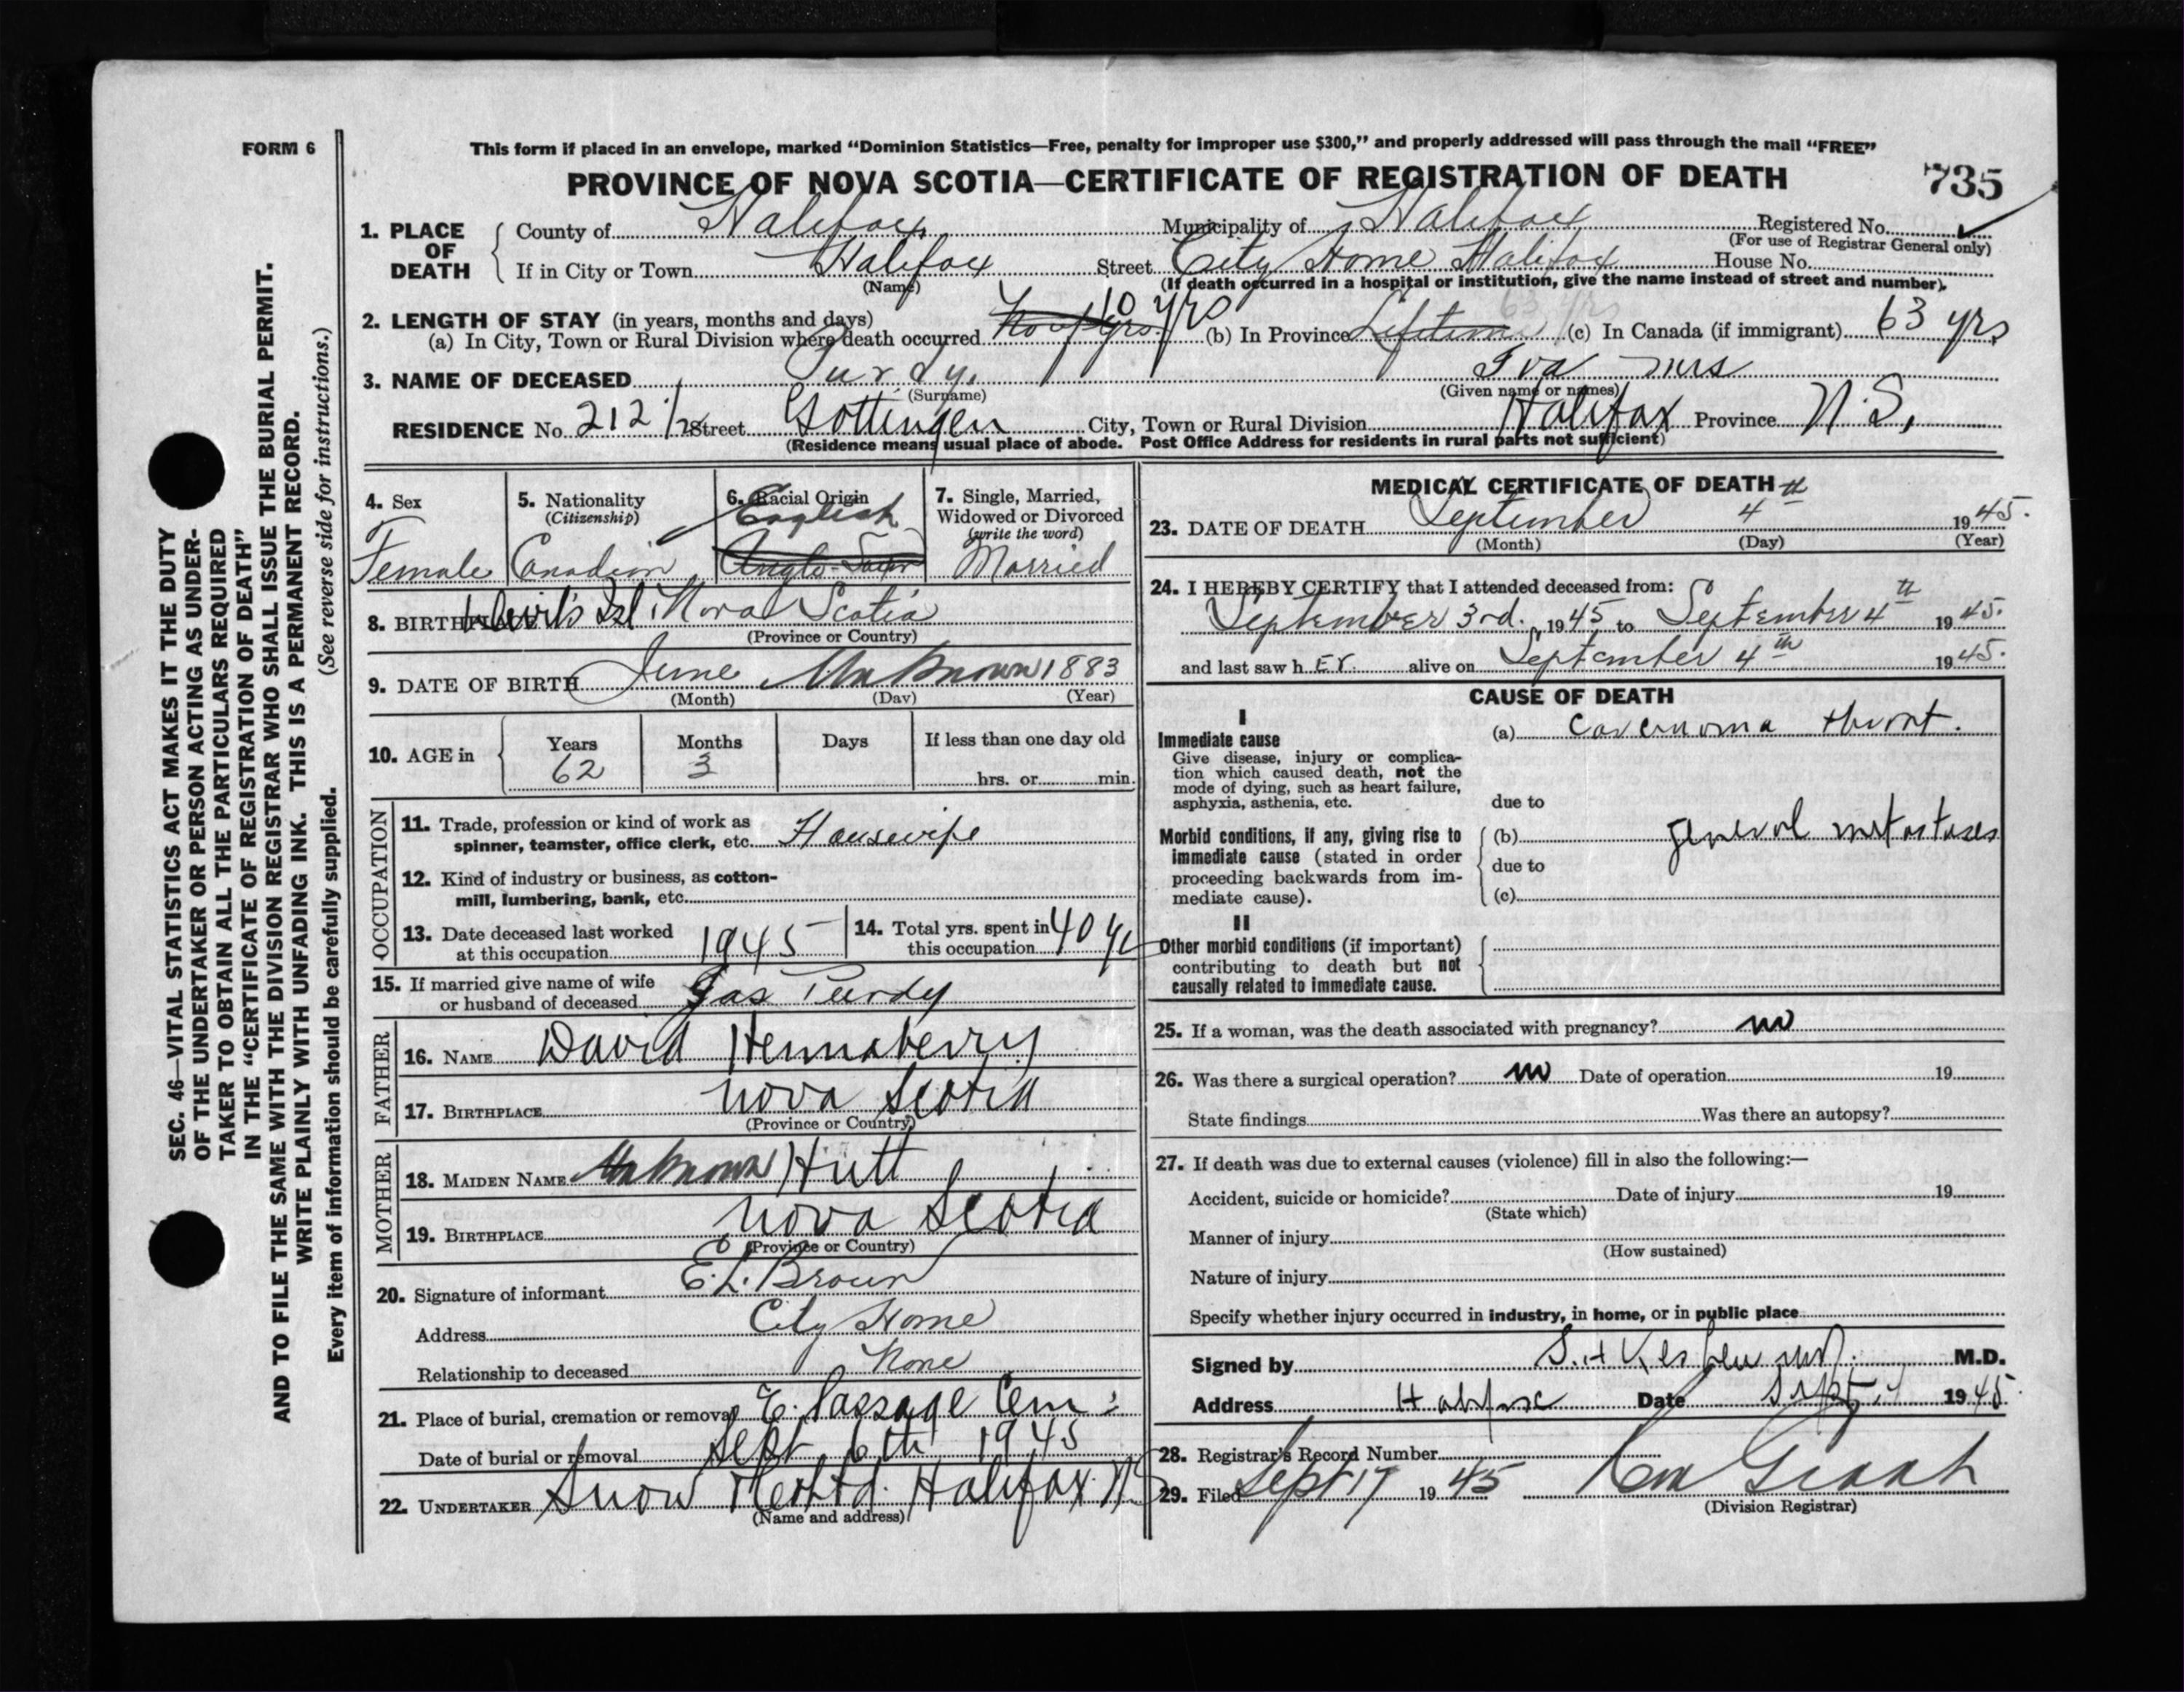 FORM 6
This form if placed in an envelope, marked “Dominion Statistics—Free, penalty for improper use $300,” and properly addressed will pass through the mail “FREE”
PROVINCE OF NOVA SCOTIA—CERTIFICATE OF REGISTRATION OF DEATH
735
1. PLACE OF DEATH
County of Halifax Municipality of Halifax Registered No.
(For use of Registrar General only)
If in City or Town Halifax Street City Home Halifax House No.
(Name) (If death occurred in a hospital or institution, give the name instead of street and number).
2. LENGTH OF STAY (in years, months and days)
(a) In City, Town or Rural Division where death occurred 10 yrs (b) In Province Lifetime 63 yrs (c) In Canada (if immigrant) 63 yrs
3. NAME OF DECEASED Purdy, Iva Mrs
(Surname) (Given name or names)
RESIDENCE No. 212 1/2 Street Gottingen City, Town or Rural Division Halifax Province N.S.
(Residence means usual place of abode. Post Office Address for residents in rural parts not sufficient)
4. Sex Female
5. Nationality (Citizenship) Canadian
6. Racial Origin English Anglo-Saxon
7. Single, Married, Widowed or Divorced (write the word) Married
8. BIRTHPLACE Devil's Isl. Nova Scotia
(Province or Country)
9. DATE OF BIRTH June Unknown 1883
(Month) (Day) (Year)
10. AGE in Years 62 Months 3 Days If less than one day old hrs. or min.
OCCUPATION
11. Trade, profession or kind of work as spinner, teamster, office clerk, etc. Housewife
12. Kind of industry or business, as cotton-mill, lumbering, bank, etc.
13. Date deceased last worked at this occupation 1945
14. Total yrs. spent in this occupation 40 yr
15. If married give name of wife or husband of deceased Jas Purdy
FATHER
16. NAME David Hennaberry
17. BIRTHPLACE Nova Scotia
(Province or Country)
MOTHER
18. MAIDEN NAME Unknown Hutt
19. BIRTHPLACE Nova Scotia
(Province or Country)
20. Signature of informant E. L. Brown
Address City Home
Relationship to deceased None
21. Place of burial, cremation or removal E. Passage Cem:
Date of burial or removal Sept 6th 1945
22. UNDERTAKER Snow & Co Ltd. Halifax N.S.
(Name and address)
MEDICAL CERTIFICATE OF DEATH
23. DATE OF DEATH September 4th 1945.
(Month) (Day) (Year)
24. I HEREBY CERTIFY that I attended deceased from:
September 3rd. 1945 to September 4th 1945.
and last saw her alive on September 4th 1945.
CAUSE OF DEATH
I
Immediate cause
Give disease, injury or complication which caused death, not the mode of dying, such as heart failure, asphyxia, asthenia, etc.
(a) throat.
due to
Morbid conditions, if any, giving rise to immediate cause (stated in order proceeding backwards from immediate cause).
(b) general metastases
due to
(c)
II
Other morbid conditions (if important) contributing to death but not causally related to immediate cause.
25. If a woman, was the death associated with pregnancy? no
26. Was there a surgical operation? no Date of operation 19
State findings Was there an autopsy?
27. If death was due to external causes (violence) fill in also the following:—
Accident, suicide or homicide? Date of injury 19
(State which)
Manner of injury
(How sustained)
Nature of injury
Specify whether injury occurred in industry, in home, or in public place
Signed by M.D.
Address Halifax Date Sept. 1945.
28. Registrar's Record Number
29. Filed Sept 17 1945
(Division Registrar)
SEC. 46—VITAL STATISTICS ACT MAKES IT THE DUTY
OF THE UNDERTAKER OR PERSON ACTING AS UNDER-
TAKER TO OBTAIN ALL THE PARTICULARS REQUIRED
IN THE “CERTIFICATE OF REGISTRATION OF DEATH”
AND TO FILE THE SAME WITH THE DIVISION REGISTRAR WHO SHALL ISSUE THE BURIAL PERMIT.
WRITE PLAINLY WITH UNFADING INK. THIS IS A PERMANENT RECORD.
Every item of information should be carefully supplied. (See reverse side for instructions.)